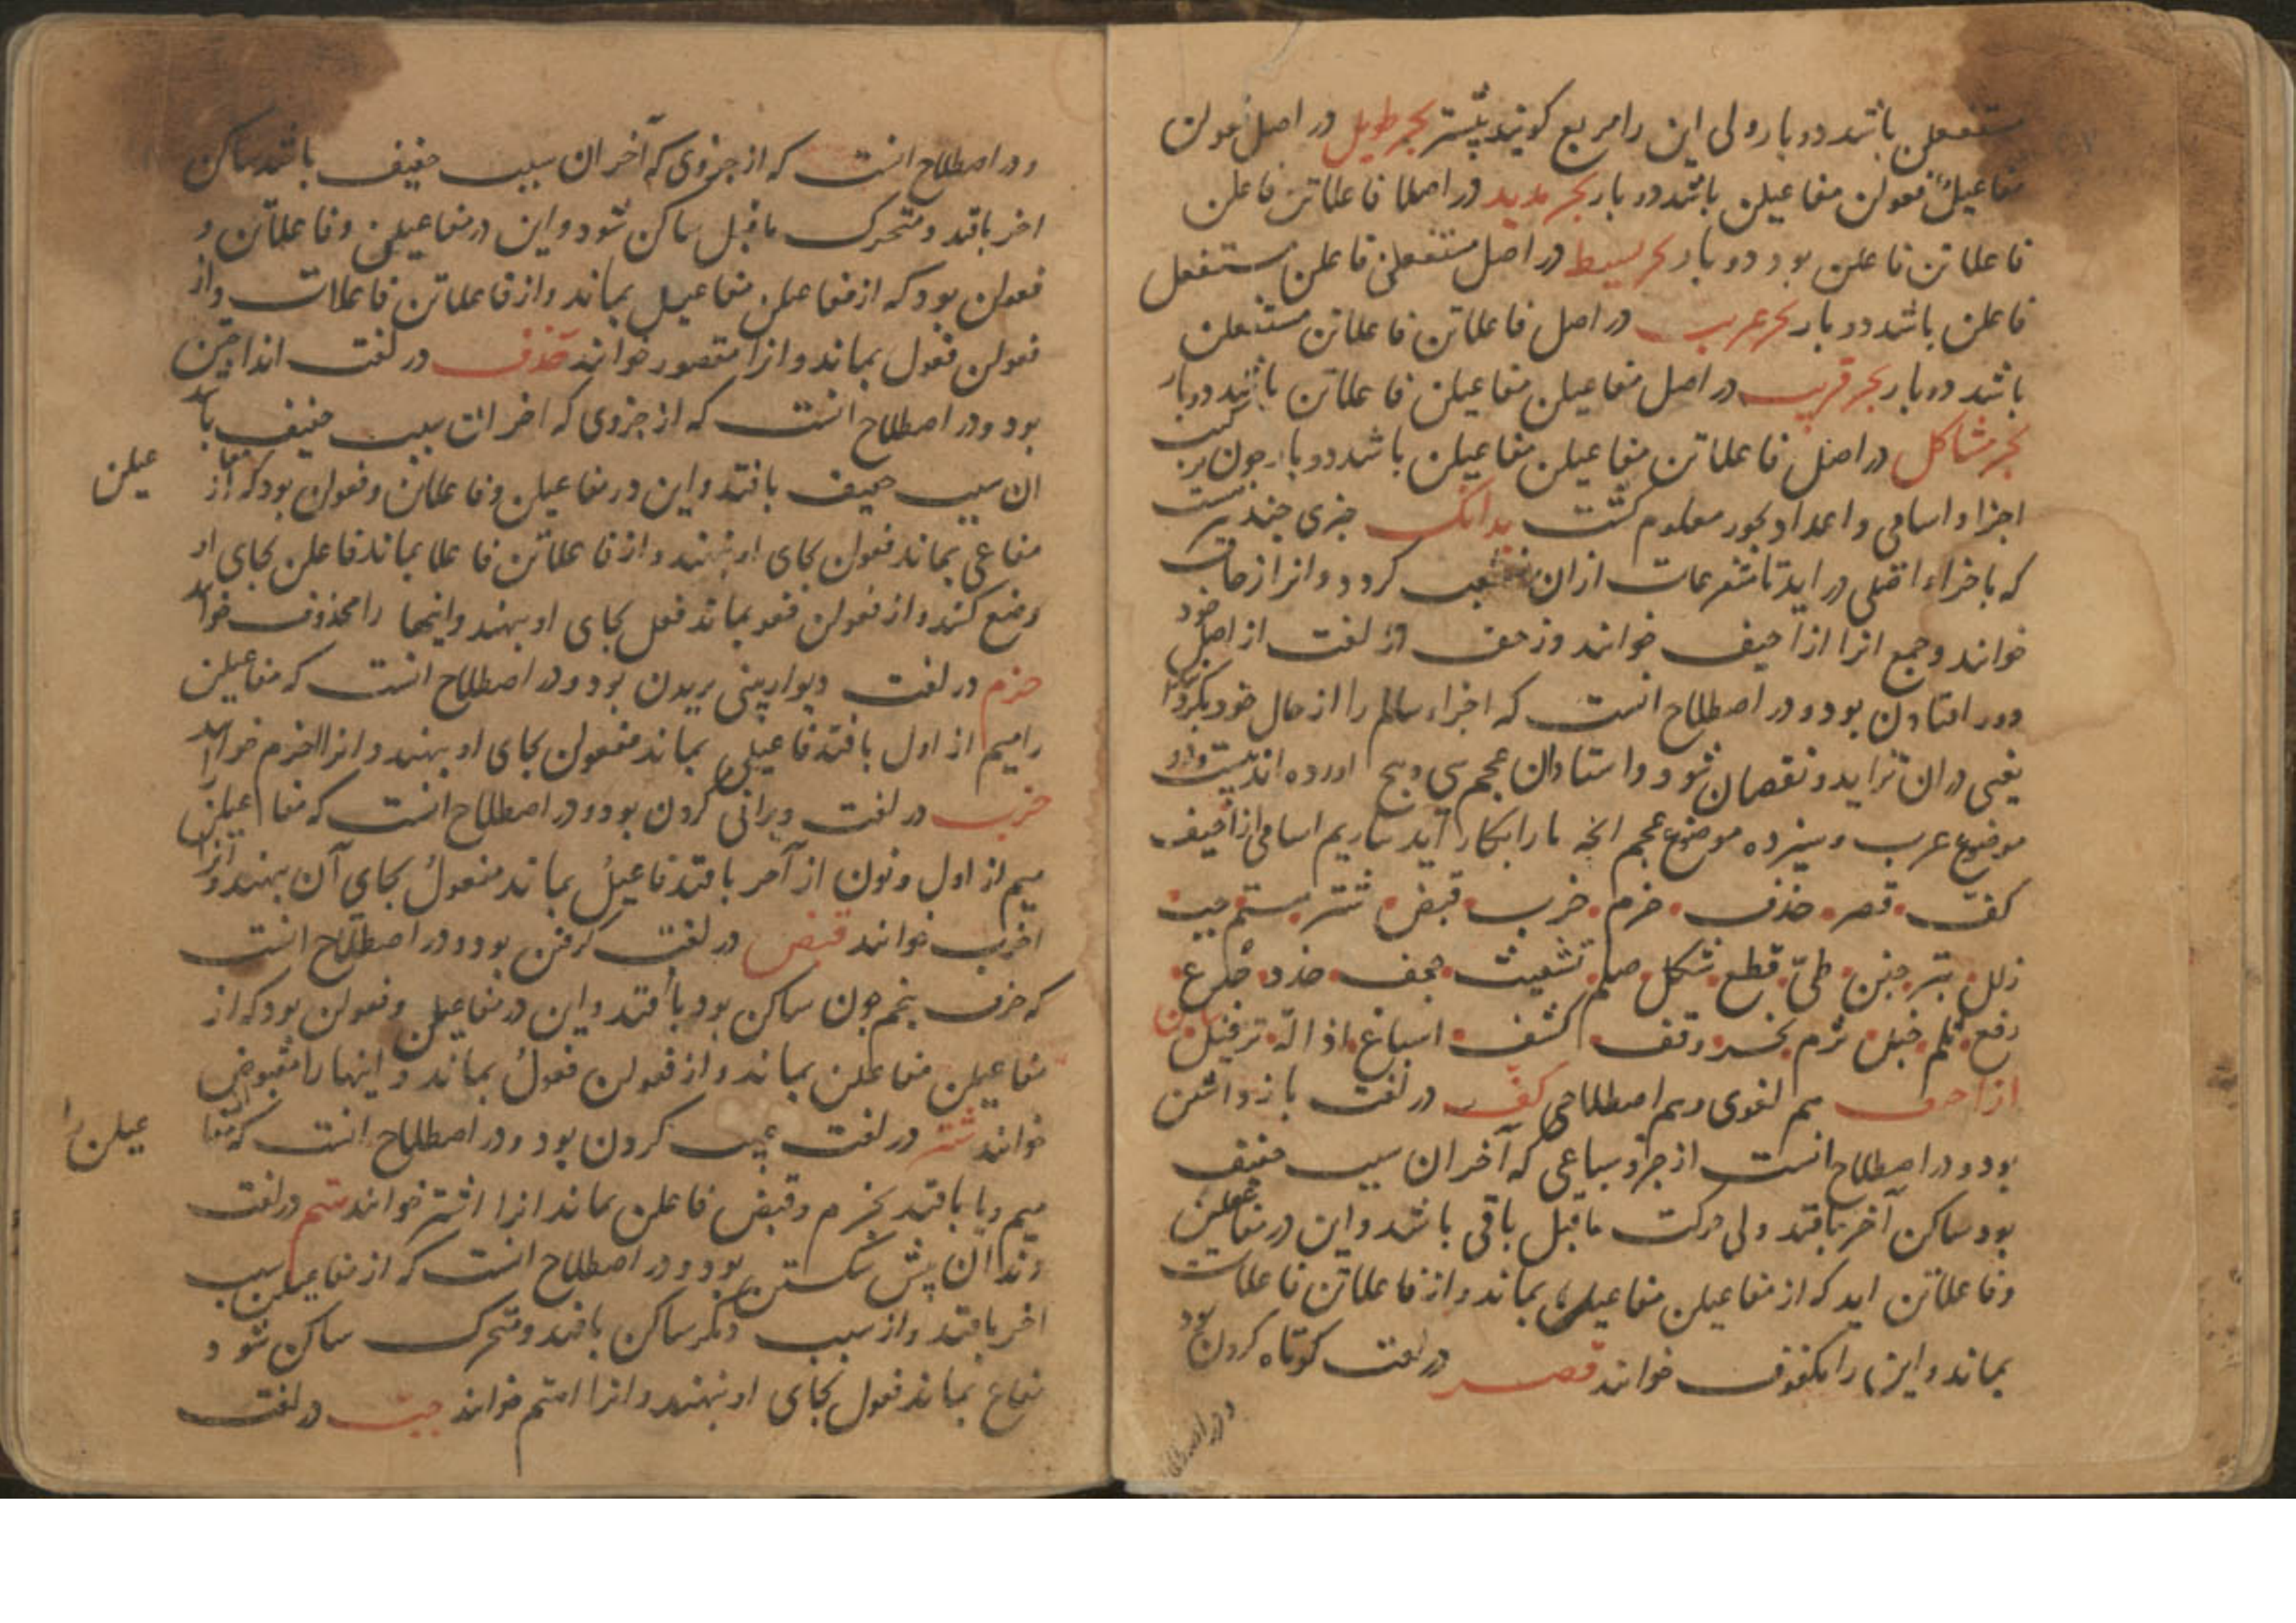 مستفعلن باشد دو بار ولی این را مربع کویند بیشتر بحر طویل در اصل فعولن
مفاعیلن فعولن مفاعیلن باشد دو بار بحر مدید در اصل فاعلاتن فاعلن
فاعلاتن فاعلن بود دو بار بحر بسیط در اصل مستفعلن فاعلن مستفعلن
فاعلن باشد دو بار بحر غریب در اصل فاعلاتن فاعلاتن مستفعلن
باشد دو بار بحر قریب در اصل مفاعیلن مفاعیلن فاعلاتن باشد دو بار
بحر مشاکل در اصل فاعلاتن مفاعیلن مفاعیلن باشد دو بار جون
اجزا و اسامی و اعداد بحور معلوم کشت بدانک جیزی جند
که باجزاء اصلی در اید تا متفرعات ازان منشعب کردد و انرا زحاف
خوانند و جمع انرا ازاحیف خوانند و زحف در لغت از اصل خود
دور افتادن بود و در اصطلاح انست که اجزاء سالم را از حال خود بکرداند
یعنی در ان تزاید و نقصان شود و استادان عجم سی و پنج اورده اند بیست و دو
موضوع عرب و سیزده موضوع عجم انجه ما را بکار آید بیاریم اسامی ازاحیف
کف قصر حذف خرم خرب قبض شتر هتم جب
زلل بتر خبن طی قطع شکل صلم تشعیث جحف حذذ
رفع ثلم خبل ثرم نحر وقف کشف اسباغ اذاله ترفیل بیان
ازاحیف هم لغوی و هم اصطلاحی کف در لغت باز داشتن
بود و در اصطلاح انست از جزو سباعی که آخر ان سبب خفیف
بود ساکن آخر بافتد ولی حرکت ماقبل باقی باشد و این در مفاعیلن
و فاعلاتن اید که از مفاعیلن مفاعیل بماند و از فاعلاتن فاعلات
بماند و این را مکفوف خوانند قصر در لغت کوتاه کردن بود
و در اصطلاح
و در اصطلاح انست که از جزوی که آخر ان سبب خفیف باشد ساکن
اخر بافتد و متحرک ماقبل ساکن شود و این در مفاعیلن و فاعلاتن و
فعولن بود که از مفاعیلن مفاعیل بماند و از فاعلاتن فاعلات و از
فعولن فعول بماند و انرا مقصور خوانند حذف در لغت انداختن
بود و در اصطلاح انست که از جزوی که اخر ان سبب خفیف باشد
ان سبب خفیف بافتد و این در مفاعیلن و فاعلاتن و فعولن بود که از مفا عیلن
مفاعی بماند فعولن بجای او نهند و از فاعلاتن فاعلا بماند فاعلن بجای او
وضع کنند و از فعولن فعو بماند فعل بجای او نهند و اینها را محذوف خوانند
خرم در لغت دیوار بینی بریدن بود و در اصطلاح انست که مفاعیلن
را میم از اول بافتد فاعیلن بماند مفعولن بجای او بنهند و انرا اخرم خوانند
خرب در لغت ویرانی کردن بود و در اصطلاح انست که مفاعیلن را
میم از اول و نون از آخر بافتد فاعیلُ بماند مفعولُ بجای آن بنهند و انرا
اخرب خوانند قبض در لغت کرفتن بود و در اصطلاح انست
که حرف پنجم جون ساکن بود بافتد و این در مفاعیلن و فعولن بود که از
مفاعیلن مفاعلن بماند و از فعولن فعولُ بماند و اینها را مقبوض
خوانند شتر در لغت عیب کردن بود و در اصطلاح انست که از مفا عیلن را
میم و یا بافتد بخرم و قبض فاعلن بماند انرا اشتر خوانند هتم در لغت
دندان پیش شکستن بود و در اصطلاح انست که از مفاعیلن سبب
اخر بافتد و از سبب دیکر ساکن بافتد و متحرک ساکن شود
مفاع بماند فعول بجای او بنهند و انرا اهتم خوانند جب در لغت